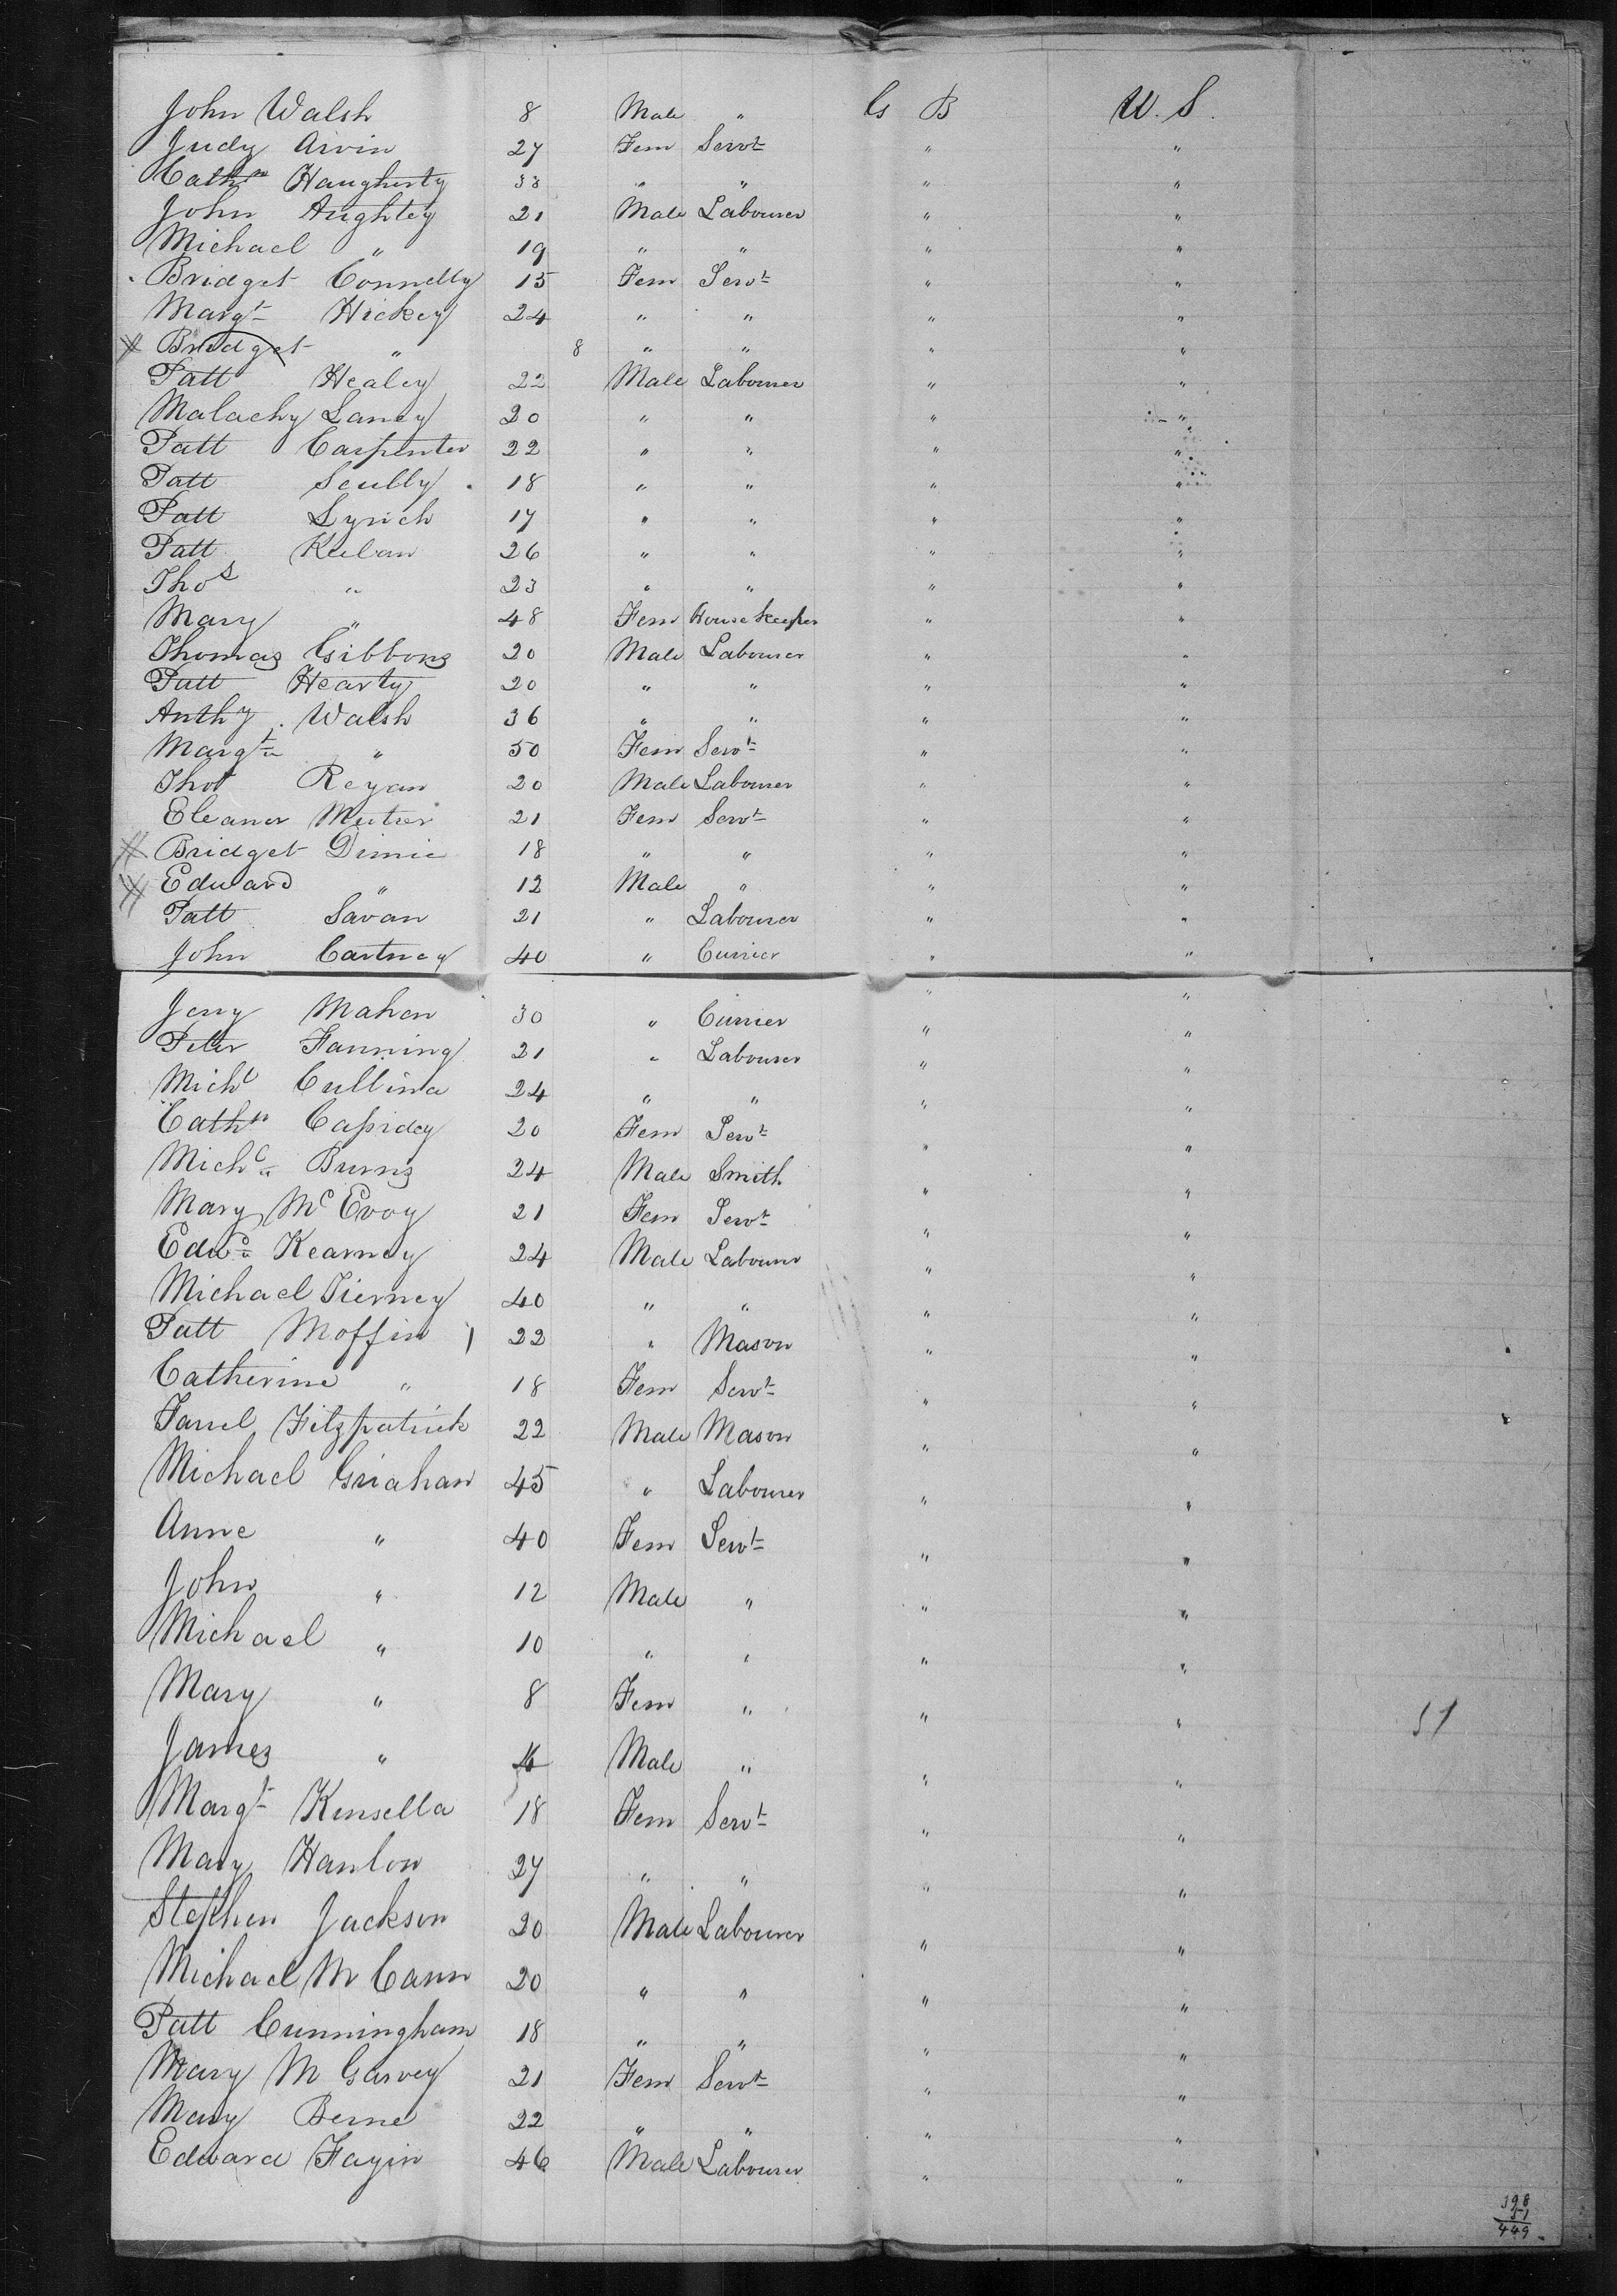 John Walsh 8 Male " G B U. S.
Judy Arvin 27 Fem Servt " "
Cathn Haugherty 33 " " " "
John Aughtey 21 Male Labourer " "
Michael " 19 " " " "
Bridget Connelly 15 Fem Servt " "
Margt Hickey 24 " " " "
Bridget " 8 " " " "
Patt Healey 22 Male Labourer " "
Malachy Laney 20 " " " "
Patt Carpenter 22 " " " "
Patt Scully 18 " " " "
Patt Lynch 17 " " " "
Patt Keelan 26 " " " "
Thos " 23 " " " "
Mary " 48 Fem House Keeper " "
Thomas Gibbons 20 Male Labourer " "
Patt Hearty 20 " " " "
Anthy Walsh 36 " " " "
Margt " 50 Fem Servt " "
Thos Reyan 20 Male Labourer " "
Eleaner 21 Fem Servt " "
Bridget Dimie 18 " " " "
Edward " 12 Male " " "
Patt Savan 21 " Labourer " "
John Cartney 40 " Currier " "
Jerry Mahon 30 " Currier " "
Peter Fanning 21 " Labourer " "
Michl Cullina 24 " " " "
Cathn Cassidey 20 Fem Servt " "
Michl Burns 24 Male Smith " "
Mary McEvoy 21 Fem Servt " "
Edwd Kearney 24 Male Labourer " "
Michael Tierney 40 " " " "
Patt Moffin 22 " Mason " "
Catherine " 18 Fem Servt " "
Farrel Fitzpatrick 22 Male Mason " "
Michael Griahan 45 " Labourer " "
Anne " 40 Fem Servt " "
John " 12 Male " " "
Michael " 10 " " " "
Mary " 8 Fem " " " 51
James " Male " " "
Margt Kinsella 18 Fem Servt " "
Mary Hanlon 27 " " " "
Stephen Jackson 20 Male Labourer " "
Michael McCann 20 " " " "
Patt Cunningham 18 " " " "
Mary McGarvey 21 Fem Servt " "
Mary Berne 22 " " " "
Edward Fagin 46 Male Labourer " "
398
51
449